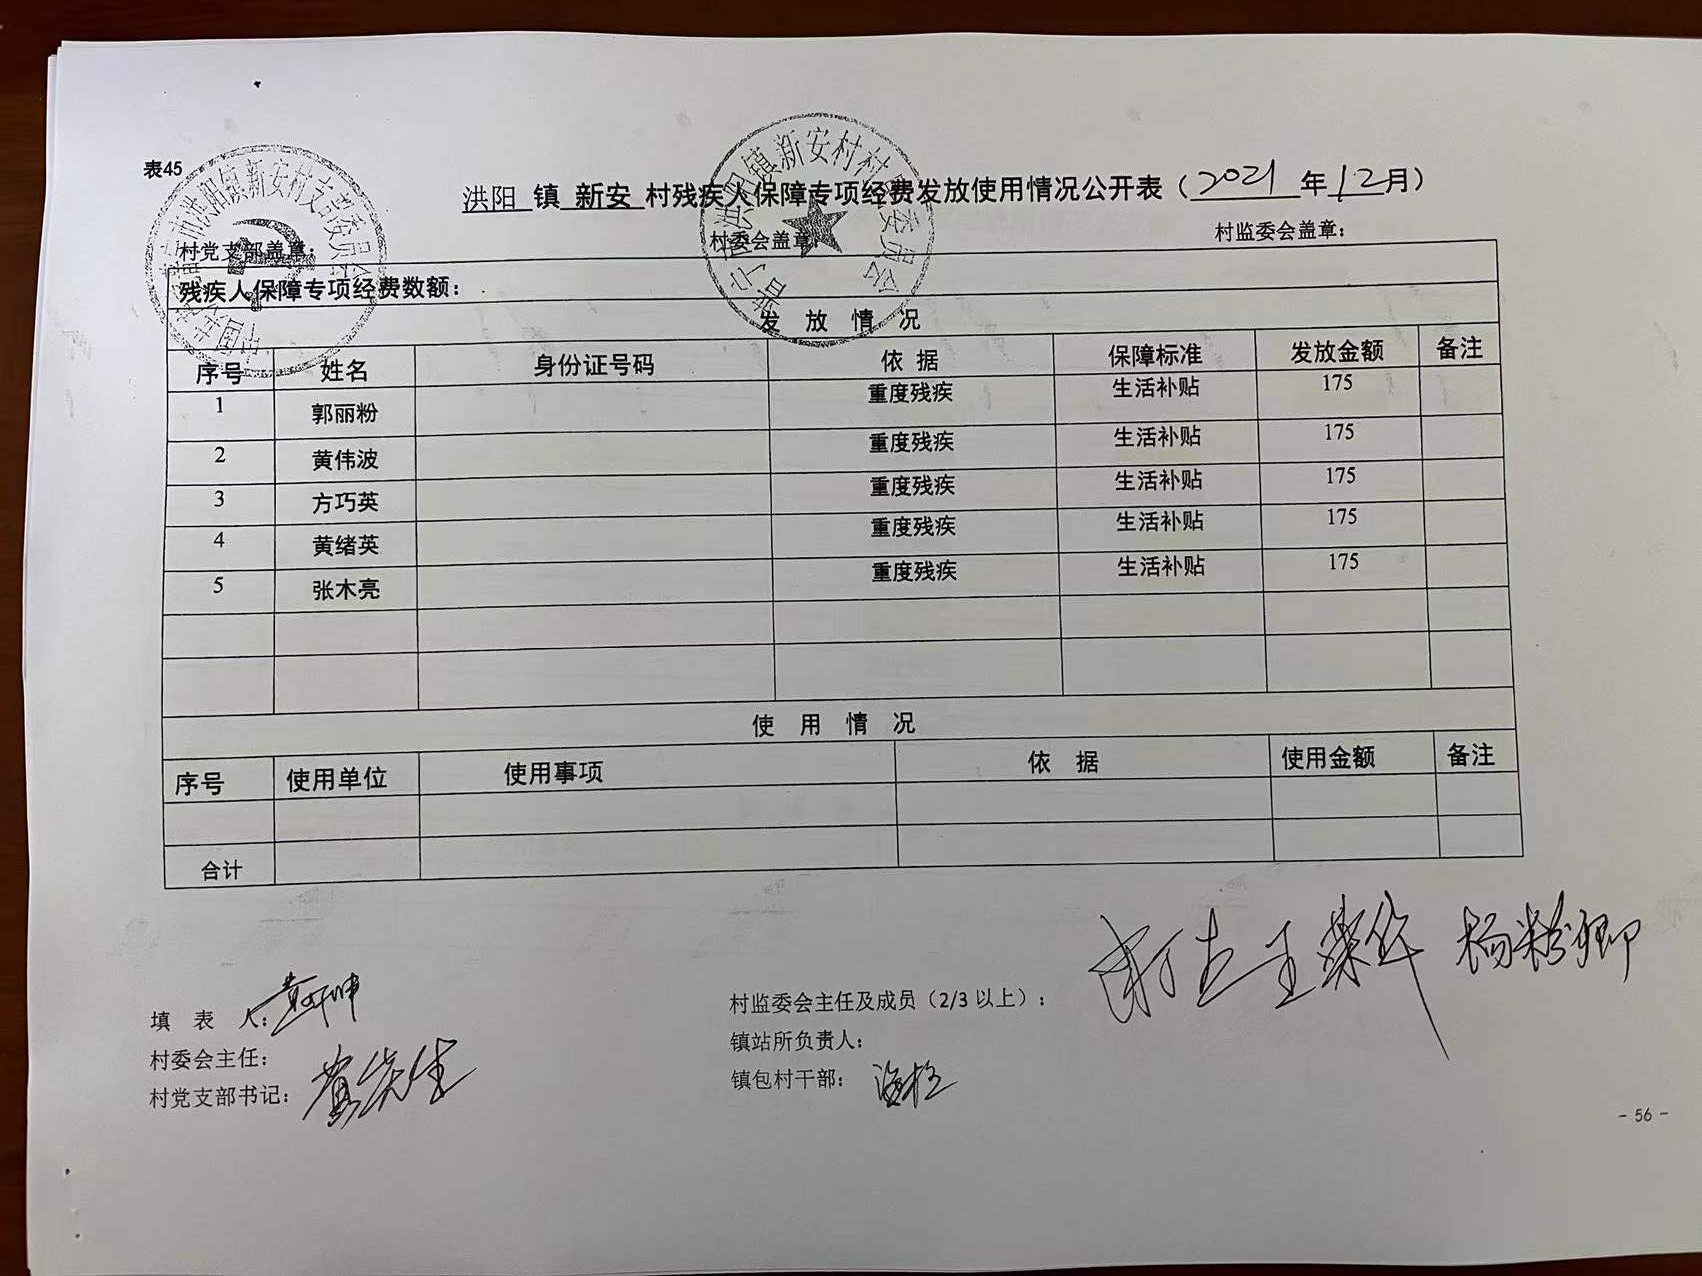 表45
洪阳 镇 新安 村残疾人保障专项经费发放使用情况公开表（2021 年 12 月）
村党支部盖章： 村委会盖章： 村监委会盖章：
残疾人保障专项经费数额：
发 放 情 况
序号 姓名 身份证号码 依 据 保障标准 发放金额 备注
1 郭丽粉 重度残疾 生活补贴 175
2 黄伟波 重度残疾 生活补贴 175
3 方巧英 重度残疾 生活补贴 175
4 黄绪英 重度残疾 生活补贴 175
5 张木亮 重度残疾 生活补贴 175
使 用 情 况
序号 使用单位 使用事项 依 据 使用金额 备注
合计
填 表 人：
村委会主任：
村党支部书记：
村监委会主任及成员（2/3 以上）： 杨粉卿
镇站所负责人：
镇包村干部：
- 56 -